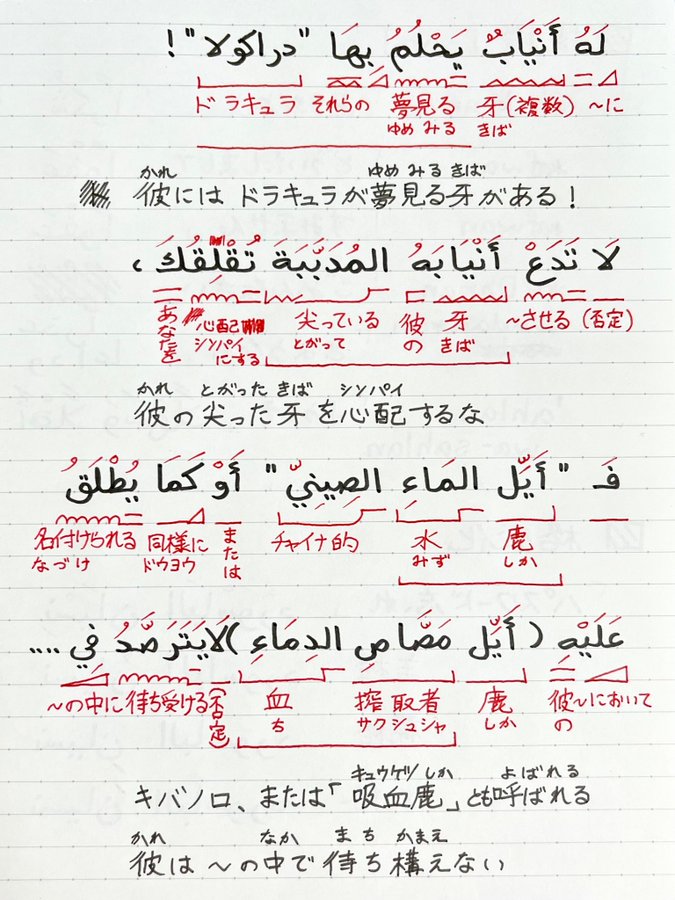 لَهُ أَنْيَابٌ يَحْلُمُ بِهَا "دراكولا"!
ドラキュラ それらの 夢見る 牙(複数) ~に
ゆめ みる きば
かれ ゆめ みる きば
彼には ドラキュラが夢見る牙がある!
لَا تَدَعْ أَنْيَابَهُ المُدَبَّبَةَ تُقْلِقُكَ،
あなたを 心配 尖っている 彼の 牙 ~させる (否定)
シンパイ にする とがって きば
かれ とがった きば シンパイ
彼の 尖った 牙 を心配するな
فَـ "أَيِّل المَاء الصينيّ" أَوْ كَمَا يُطْلَقُ
名付けられる 同様に または チャイナ的 水 鹿
なづけ ドウヨウ みず しか
عَلَيْهِ (أَيِّل مَصَّاص الدمَاء) لَا يَتَرَصَّدُ في ....
~の中に 待ち受ける (否定) 血 搾取者 鹿 彼の ~において
ち サクシュシャ しか
キュウケツ しか よばれる
キバノロ、または「吸血鹿」とも呼ばれる
かれ なか まち かまえ
彼は ~の中で 待ち構えない